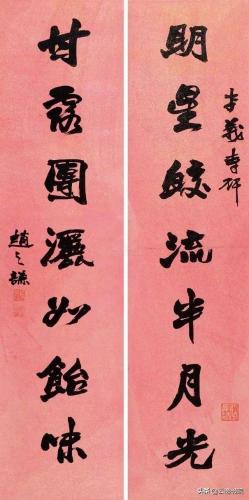 明星皎流半月光
甘露團灑如飴味
趙之謙